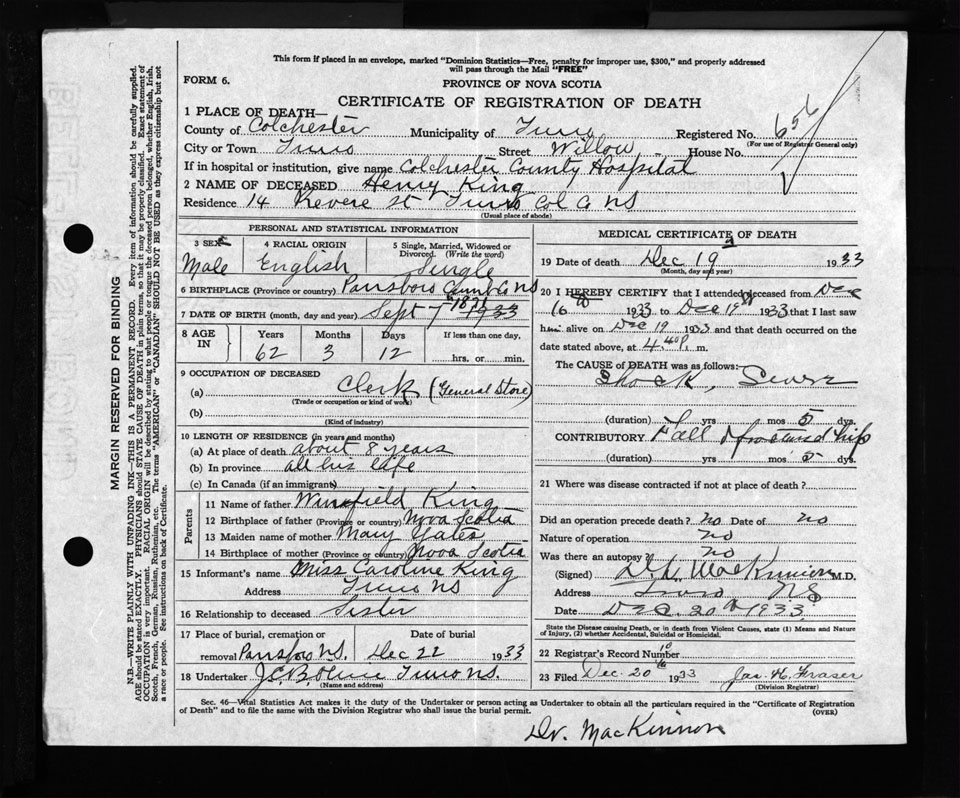 This form if placed in an envelope, marked "Dominion Statistics—Free, penalty for improper use, $300," and properly addressed
will pass through the Mail "FREE"
FORM 6.
PROVINCE OF NOVA SCOTIA
CERTIFICATE OF REGISTRATION OF DEATH
1 PLACE OF DEATH—
County of Colchester Municipality of Truro Registered No. 656
(For use of Registrar General only)
City or Town Truro Street Willow House No.
If in hospital or institution, give name Colchester County Hospital
2 NAME OF DECEASED Henry King
Residence 14 Revere st Truro Col Co NS
(Usual place of abode)
PERSONAL AND STATISTICAL INFORMATION
3 SEX 4 RACIAL ORIGIN 5 Single, Married, Widowed or
Divorced. (Write the word)
Male English Single
6 BIRTHPLACE (Province or country) Parrsboro Cumb Co NS
7 DATE OF BIRTH (month, day and year) Sept 7 1871 1933
8 AGE IN Years Months Days If less than one day,
62 3 12 hrs. or min.
9 OCCUPATION OF DECEASED
(a) Clerk (General Store)
(Trade or occupation or kind of work)
(b)
(Kind of industry)
10 LENGTH OF RESIDENCE (in years and months)
(a) At place of death about 8 years
(b) In province all his life
(c) In Canada (if an immigrant)
Parents
11 Name of father Winfield King
12 Birthplace of father (Province or country) Nova Scotia
13 Maiden name of mother Mary Yates
14 Birthplace of mother (Province or country) Nova Scotia
15 Informant's name Miss Caroline King
Address Truro NS
16 Relationship to deceased Sister
17 Place of burial, cremation or Date of burial
removal Parrsboro N.S. Dec 22 1933
18 Undertaker Truro N.S.
(Name and address)
MEDICAL CERTIFICATE OF DEATH
19 Date of death Dec 19 1933
(Month, day and year)
20 I HEREBY CERTIFY that I attended deceased from Dec
16 1933 to Dec 19 1933 that I last saw
him alive on Dec 19 1933 and that death occurred on
date stated above, at 4.40 p. m.
The CAUSE OF DEATH was as follows:
Shock, Severe
(duration) yrs mos 5 dys.
CONTRIBUTORY Fall & fractured hip
(duration) yrs. mos 5 dys.
21 Where was disease contracted if not at place of death?
Did an operation precede death? no Date of no
Nature of operation no
Was there an autopsy? no
(Signed) MacKinnon M.D.
Address Truro NS
Date Dec. 20th 1933
State the Disease causing Death, or in death from Violent Causes, state (1) Means and Nature
of Injury, (2) whether Accidental, Suicidal or Homicidal.
22 Registrar's Record Number
23 Filed Dec. 20 1933 Jas. H. Fraser
(Division Registrar)
Sec. 46—Vital Statistics Act makes it the duty of the Undertaker or person acting as Undertaker to obtain all the particulars required in the "Certificate of Registration
of Death" and to file the same with the Division Registrar who shall issue the burial permit.
(OVER)
Dr. MacKinnon
MARGIN RESERVED FOR BINDING
N.B.—WRITE PLAINLY WITH UNFADING INK—THIS IS A PERMANENT RECORD. Every item of information should be carefully supplied.
AGE should be stated EXACTLY. PHYSICIANS should state CAUSE OF DEATH in plain terms, so that it may be properly classified. Exact statement of
OCCUPATION is very important. RACIAL ORIGIN will be described by stating to what people or tongue the deceased person belonged, whether English, Irish,
Scotch, French, German, Russian, Ruthenian, etc. The terms "AMERICAN" or "CANADIAN" SHOULD NOT BE USED as they express citizenship but not
a race or people. See instructions on back of Certificate.